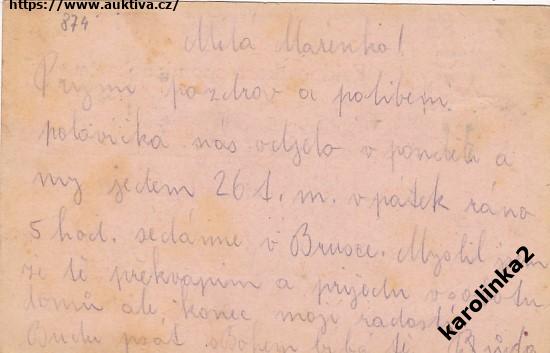 https://www.auktiva.cz/
874
Milá Mařenko!
Příjmi pozdrav a políbení
polovička nás odjelo v pondělí a
my jedem 26 t. m. v pátek ráno
5 hod. sedáme v Brusce. Myslil jsem
že tě překvapím a přijedu v sobotu
domů ale konec mojí radosti
Budu psát Sbohem
karolinka2